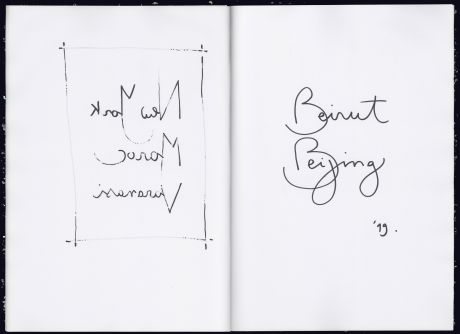 New York
Maroc
Varanasi
Beirut
Beijing
'19.